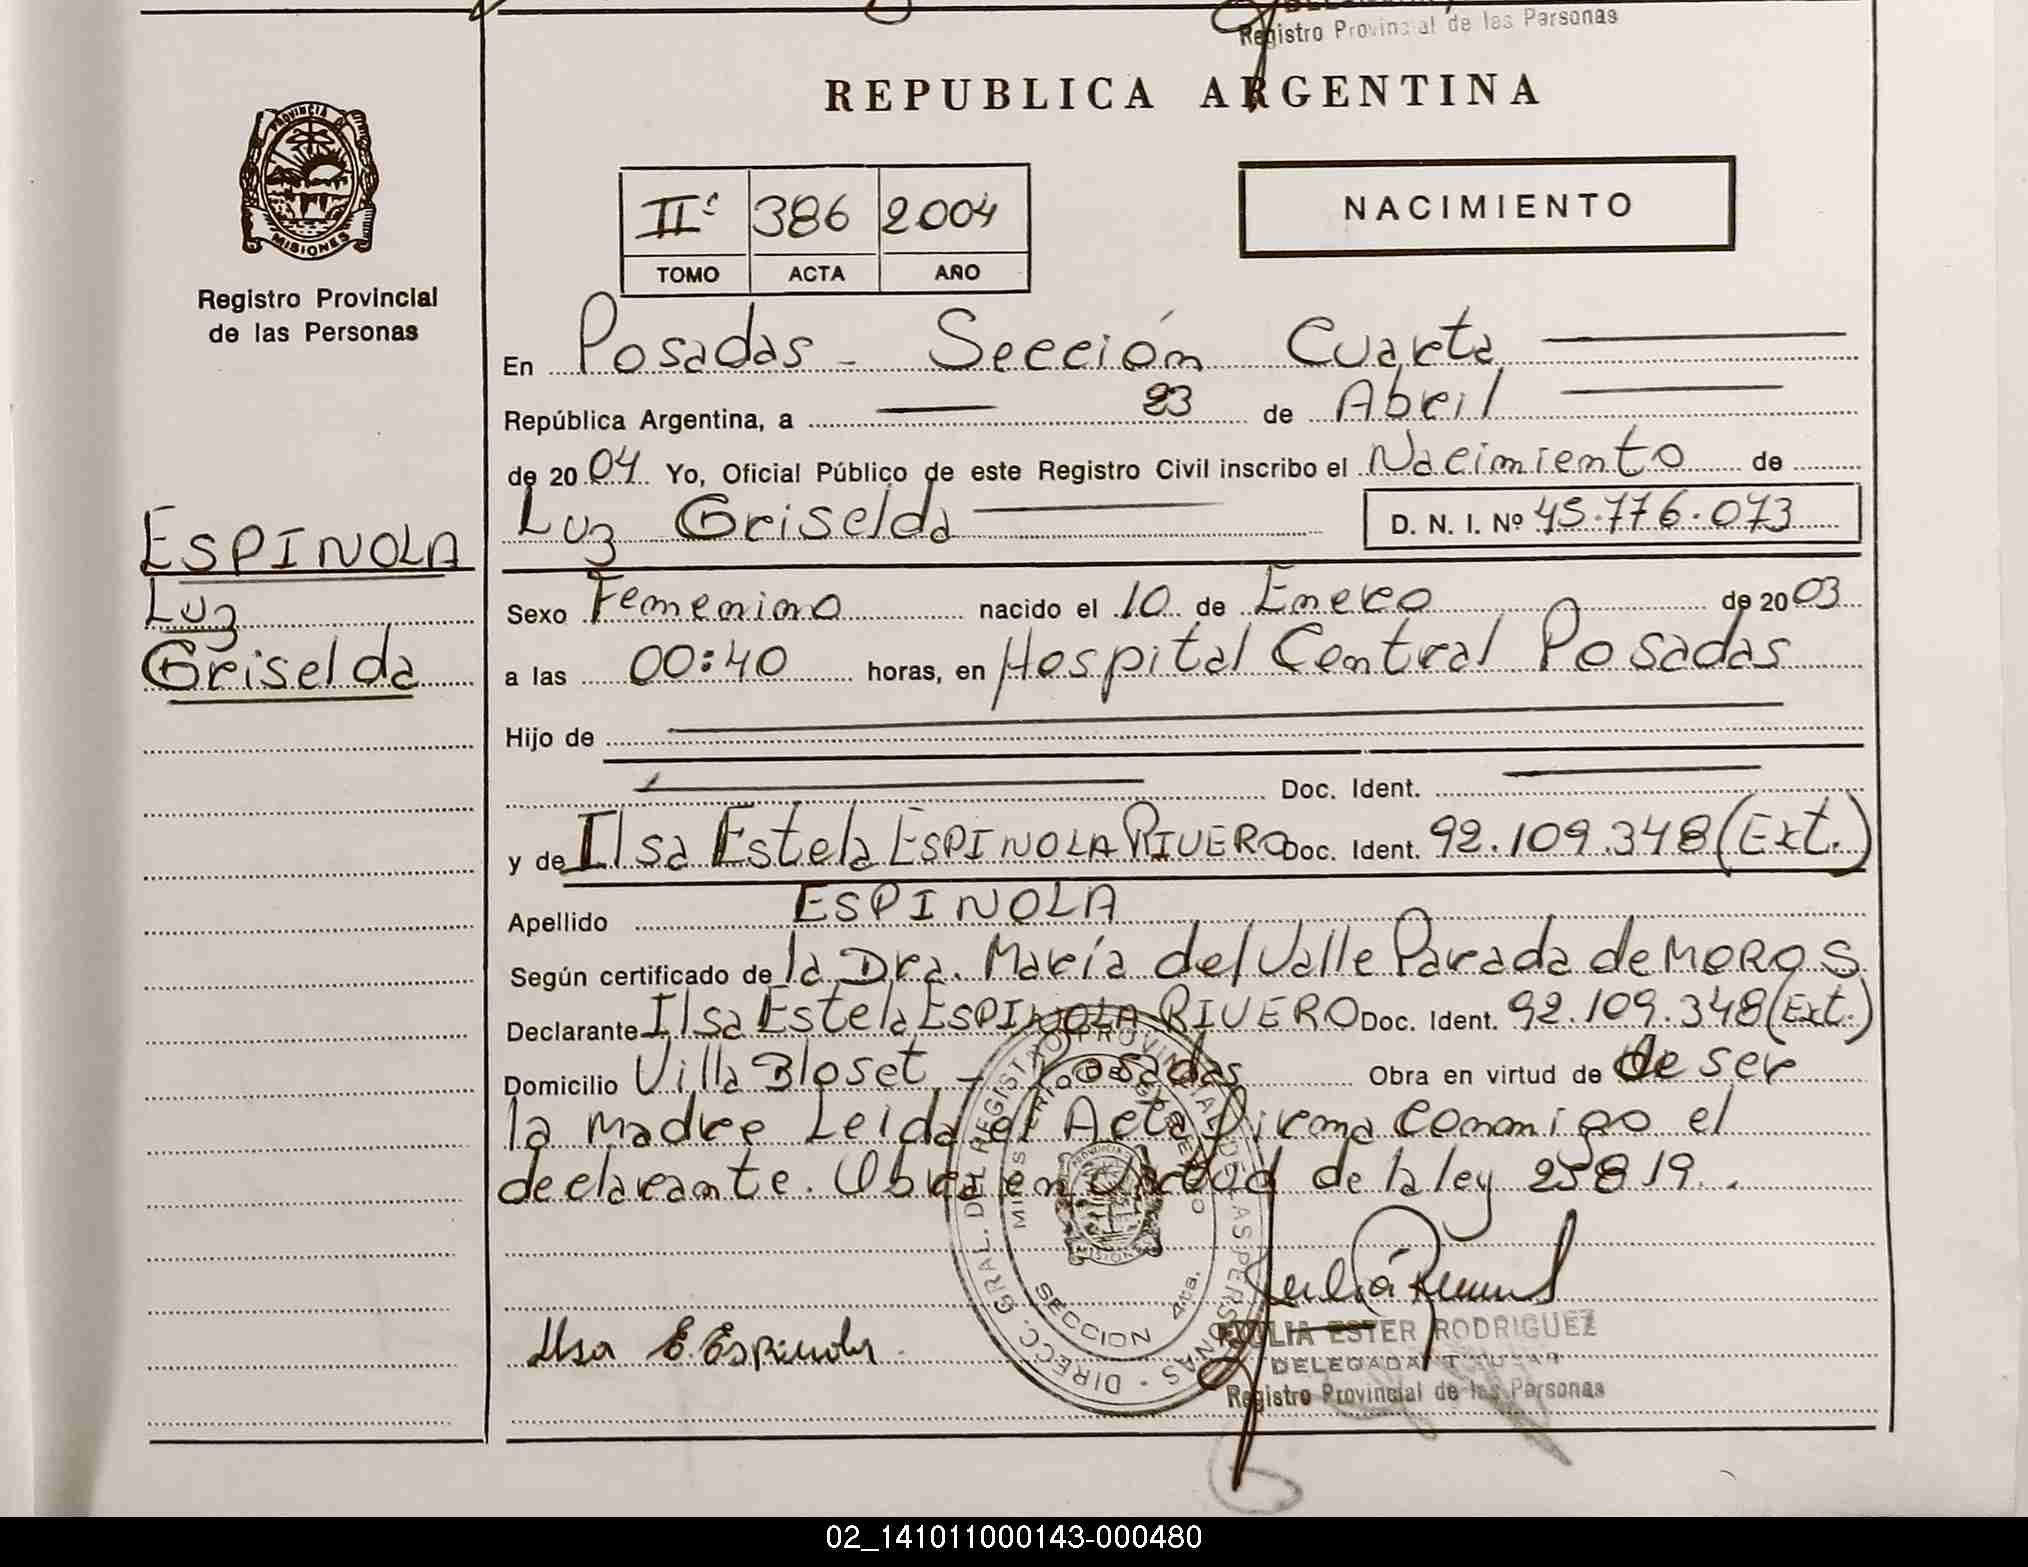 Registro Provincial de las Personas
REPUBLICA ARGENTINA
PROVINCIA DE
MISIONES
Registro Provincial
de las Personas
IIº 386 2004
TOMO ACTA AÑO
NACIMIENTO
En Posadas - Sección Cuarta
República Argentina, a 23 de Abril
de 2004 Yo, Oficial Público de este Registro Civil inscribo el Nacimiento de
Luz Griselda D. N. I. Nº 45.776.073
ESPINOLA
Luz
Griselda
Sexo Femenino nacido el 10 de Enero de 2003
a las 00:40 horas, en Hospital Central Posadas
Hijo de
Doc. Ident.
y de Ilsa Estela ESPINOLA RIVERO Doc. Ident. 92.109.348 (Ext.)
Apellido ESPINOLA
Según certificado de la Dra. María del Valle Parada de MOROS
Declarante Ilsa Estela ESPINOLA RIVERO Doc. Ident. 92.109.348 (Ext.)
Domicilio Villa Bloset - Posadas Obra en virtud de de ser
la madre Leida el Acta Firma Conmigo el
declarante. Obra en virtud de la ley 25819..
DIRECC. GRAL. DEL REGISTRO PROVINCIAL DE LAS PERSONAS
MINISTERIO DE GOBIERNO
SECCION 4ta.
Ilsa E. Espinola
JULIA ESTER RODRIGUEZ
DELEGADA TITULAR
Registro Provincial de las Personas
02_141011000143-000480